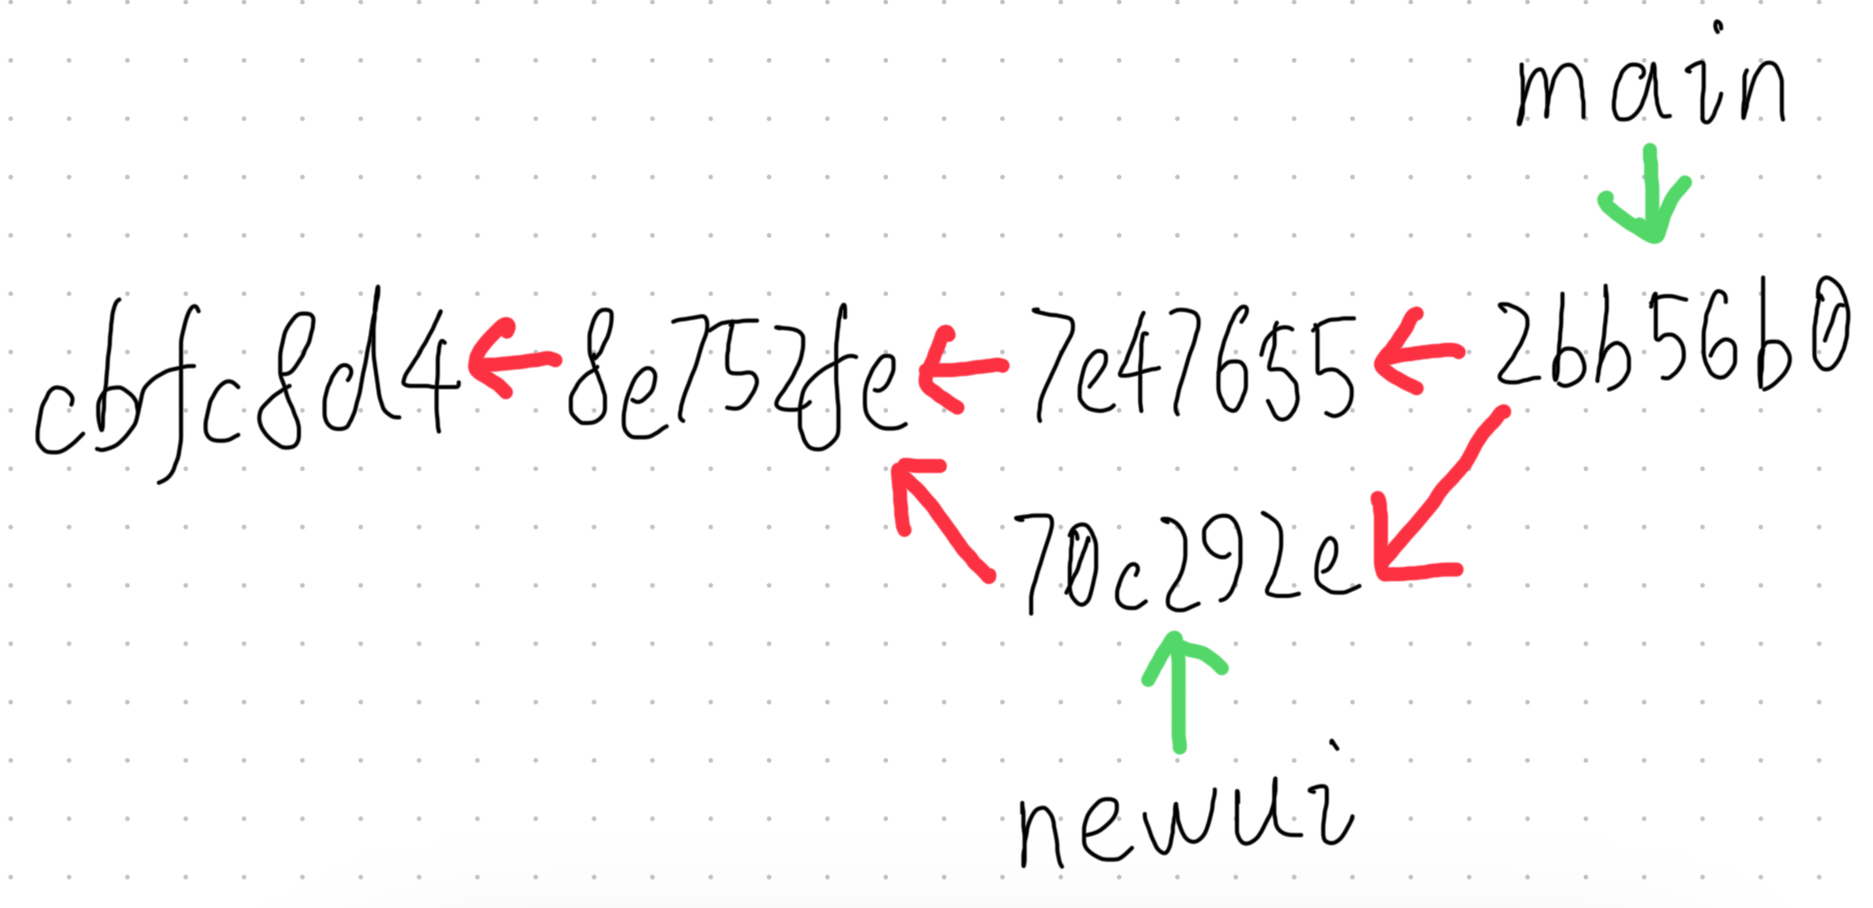 main
cbfc8d4 8e752fe 7e47655 2bb56b0
70c292e
newui